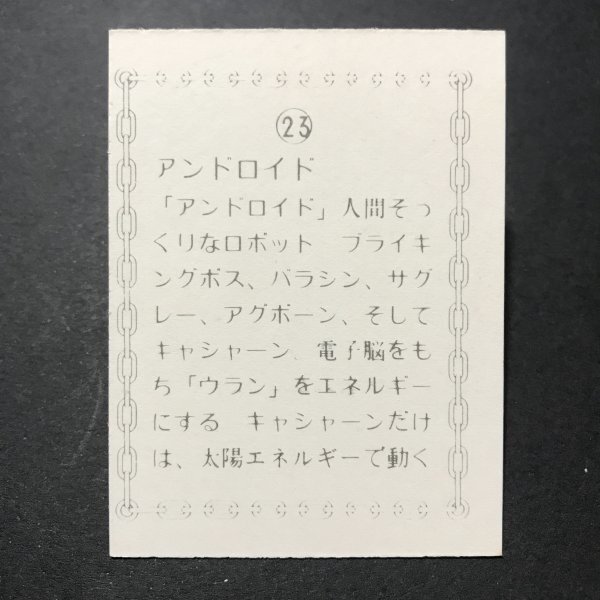 23
アンドロイド
「アンドロイド」人間そっ
くりなロボット　ブライキ
ングボス、バラシン、サグ
レー、アグボーン、そして
キャシャーン、電子脳をも
ち「ウラン」をエネルギー
にする　キャシャーンだけ
は、太陽エネルギーで動く